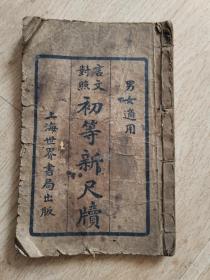 男女適用
言文對照
初等新尺牘
上海世界書局出版